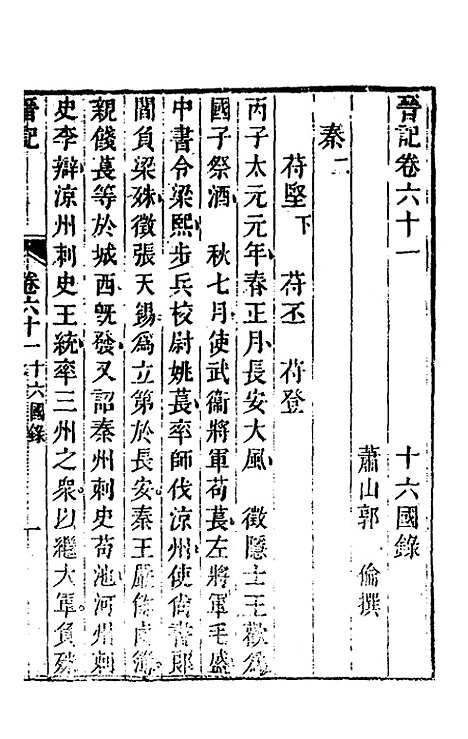 晉記卷六十一　十六國錄
蕭山郭　倫撰
秦二
苻堅下　苻丕　苻登
丙子太元元年春正月長安大風　徵隱士王歡爲
國子祭酒　秋七月使武衞將軍苟萇左將軍毛盛
中書令梁熙步兵校尉姚萇率師伐涼州使尙書郎
閻負梁殊徵張天錫爲立第於長安秦王嚴餙鹵簿
親餞萇等於城西旣發又詔秦州刺史苟池河州刺
史李辯涼州刺史王統率三州之衆以繼大軍負殊
晉記　卷六十一　十六國錄　一